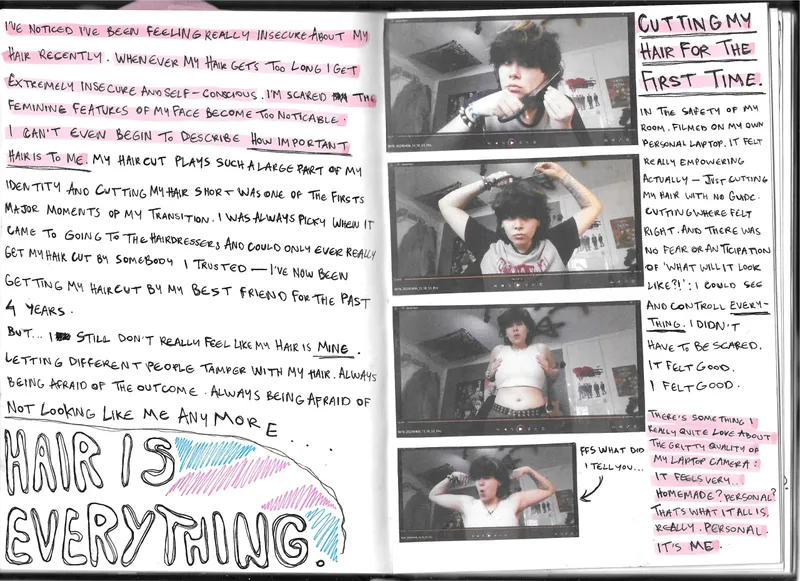 I'VE NOTICED I'VE BEEN FEELING REALLY INSECURE ABOUT MY
HAIR RECENTLY. WHENEVER MY HAIR GETS TOO LONG I GET
EXTREMELY INSECURE AND SELF-CONSCIOUS. I'M SCARED THE
FEMININE FEATURES OF MY FACE BECOME TOO NOTICABLE.
I CAN'T EVEN BEGIN TO DESCRIBE HOW IMPORTANT
HAIR IS TO ME. MY HAIRCUT PLAYS SUCH A LARGE PART OF MY
IDENTITY AND CUTTING MY HAIR SHORT WAS ONE OF THE FIRSTS
MAJOR MOMENTS OF MY TRANSITION. I WAS ALWAYS PICKY WHEN IT
CAME TO GOING TO THE HAIRDRESSERS AND COULD ONLY EVER REALLY
GET MY HAIR CUT BY SOMEBODY I TRUSTED — I'VE NOW BEEN
GETTING MY HAIRCUT BY MY BEST FRIEND FOR THE PAST
4 YEARS.
BUT... I STILL DON'T REALLY FEEL LIKE MY HAIR IS MINE.
LETTING DIFFERENT PEOPLE TAMPER WITH MY HAIR. ALWAYS
BEING AFRAID OF THE OUTCOME. ALWAYS BEING AFRAID OF
NOT LOOKING LIKE ME ANYMORE....
HAIR IS
EVERYTHING.
CUTTING MY
HAIR FOR THE
FIRST TIME.
IN THE SAFETY OF MY
ROOM. FILMED ON MY OWN
PERSONAL LAPTOP. IT FELT
REALLY EMPOWERING
ACTUALLY — JUST CUTTING
MY HAIR WITH NO GUIDE.
CUTTING WHERE FELT
RIGHT. AND THERE WAS
NO FEAR OR ANTICIPATION
OF 'WHAT WILL IT LOOK
LIKE?!': I COULD SEE
AND CONTROLL EVERY-
THING. I DIDN'T
HAVE TO BE SCARED.
IT FELT GOOD.
I FELT GOOD.
FFS WHAT DID
I TELL YOU...
THERE'S SOMETHING I
REALLY QUITE LOVE ABOUT
THE GRITTY QUALITY OF
MY LAPTOP CAMERA:
IT FEELS VERY...
HOMEMADE? PERSONAL?
THATS WHAT IT ALL IS,
REALLY. PERSONAL.
IT'S ME.